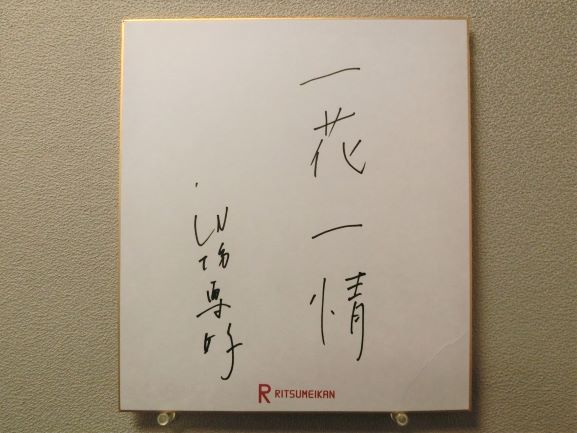 一花一情
池坊専好
R RITSUMEIKAN